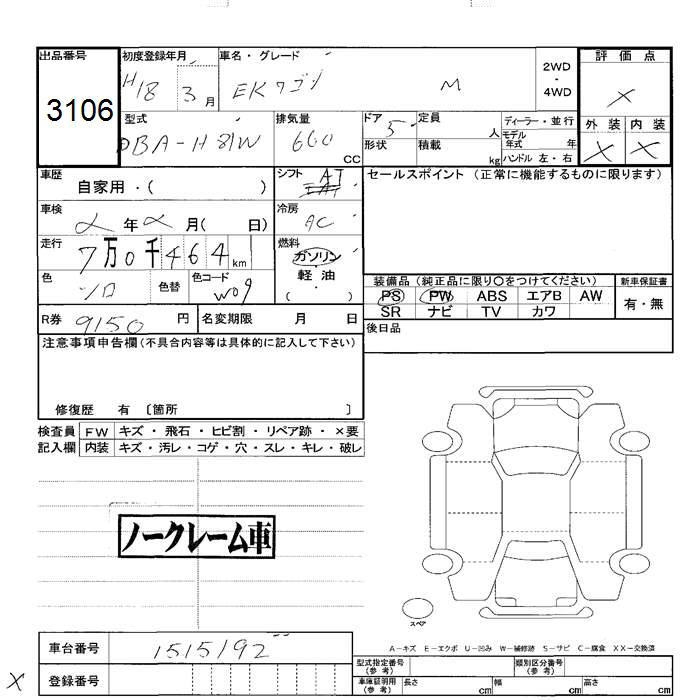 出品番号 初度登録年月 車名・グレード 2WD・4WD 評価点
3106 H18 3月 EKワゴン M ×
型式 排気量 ドア 定員 ディーラー・並行 外装 内装
DBA-H81W 660 CC 5 人 モデル年式 年 × ×
形状 積載 kg ハンドル 左・右
車歴 自家用・( ) シフト AT セールスポイント (正常に機能するものに限ります)
車検 年 月( 日) 冷房 AC
走行 7万0千464km 燃料 ガソリン・軽油 ( )
色 シロ 色替 色コード W09
装備品 (純正品に限り〇をつけてください) 新車保証書
PS PW ABS エアB AW 有・無
SR ナビ TV カワ
R券 9150 円 名変期限 月 日 後日品
注意事項申告欄(不具合内容等は具体的に記入して下さい)
修復歴 有 〔箇所 〕
検査員 FW キズ・飛石・ヒビ割・リペア跡・×要
記入欄 内装 キズ・汚レ・コゲ・穴・スレ・キレ・破レ
ノークレーム車
スペア
A-キズ E-エクボ U-凹み W-補修跡 S-サビ C-腐食 XX-交換済
車台番号 1515192
型式指定番号(参考) 類別区分番号(参考)
× 登録番号
車庫証明用(参考) 長さ cm 幅 cm 高さ cm